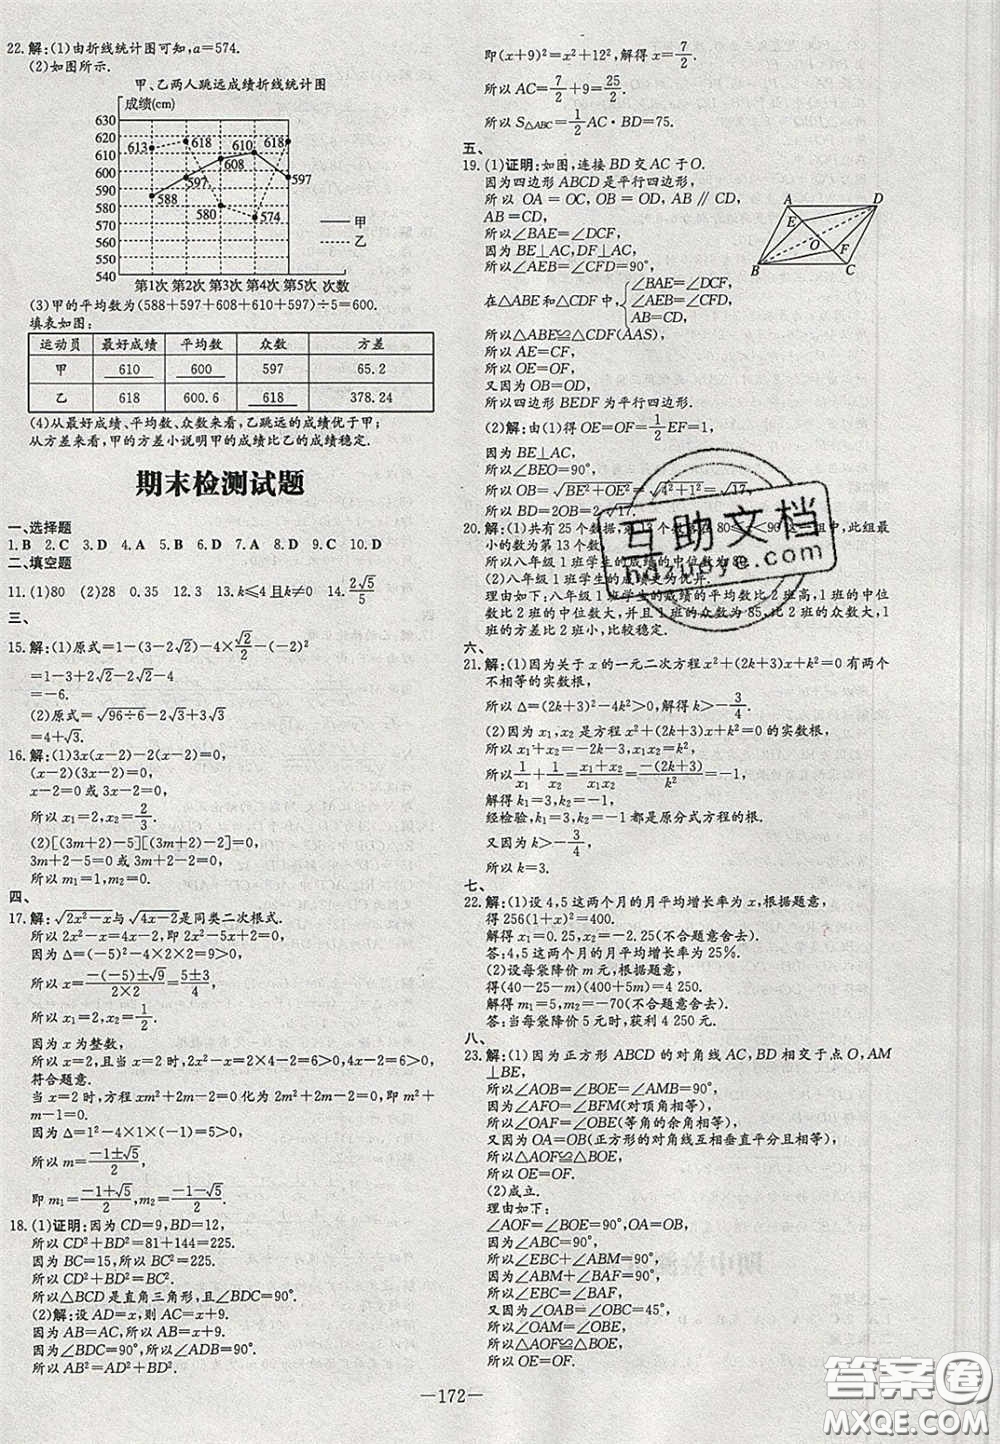 22.解:(1)由折线统计图可知,a=574.
(2)如图所示.
甲、乙两人跳远成绩折线统计图
成绩(cm)
630
620
610
600
590
580
570
560
550
540
613
618
610
618
608
597
597
588
580
574
甲
乙
第1次 第2次 第3次 第4次 第5次 次数
(3)甲的平均数为(588+597+608+610+597)÷5=600.
填表如图:
运动员 最好成绩 平均数 众数 方差
甲 610 600 597 65.2
乙 618 600.6 618 378.24
(4)从最好成绩、平均数、众数来看,乙跳远的成绩优于甲;
从方差来看,甲的方差小说明甲的成绩比乙的成绩稳定.
期末检测试题
一、选择题
1.B 2.C 3.D 4.A 5.B 6.D 7.B 8.D 9.C 10.D
二、填空题
11.(1)80 (2)28 0.35 12.3 13.k≤4且k≠0 14.2√5/5
三、
15.解:(1)原式=1-(3-2√2)-4×√2/2-(-2)²
=1-3+2√2-2√2-4
=-6.
(2)原式=√(96÷6)-2√3+3√3
=4+√3.
16.解:(1)3x(x-2)-2(x-2)=0,
(x-2)(3x-2)=0,
x-2=0或3x-2=0,
所以x₁=2,x₂=2/3.
(2)[(3m+2)-5][(3m+2)-2]=0,
3m+2-5=0或3m+2-2=0,
所以m₁=1,m₂=0.
四、
17.解:√(2x²-x)与√(4x-2)是同类二次根式.
所以2x²-x=4x-2,即2x²-5x+2=0.
因为Δ=(-5)²-4×2×2=9>0,
所以x=(-(-5)±√9)/(2×2)=(5±3)/4.
所以x₁=2,x₂=1/2.
因为x为整数,
所以x=2,且当x=2时,2x²-x=2×4-2=6>0,4x-2=6>0,
符合题意.
当x=2时,方程xm²+2m-2=0化为2m²+2m-2=0,即m²+
m-1=0.
因为Δ=1²-4×1×(-1)=5>0,
所以m=(-1±√5)/2,
即m₁=(-1+√5)/2,m₂=(-1-√5)/2.
18.(1)证明:因为CD=9,BD=12,
所以CD²+BD²=81+144=225.
因为BC=15,所以BC²=225.
所以CD²+BD²=BC².
所以△BCD是直角三角形,且∠BDC=90°.
(2)解:设AD=x,则AC=x+9.
因为AB=AC,所以AB=x+9.
因为∠BDC=90°,所以∠ADB=90°.
所以AB²=AD²+BD².
即(x+9)²=x²+12²,解得x=7/2.
所以AC=7/2+9=25/2.
所以S△ABC=1/2AC·BD=75.
五、
19.(1)证明:如图,连接BD交AC于O.
因为四边形ABCD是平行四边形,
所以OA=OC,OB=OD,AB∥CD,
AB=CD,
所以∠BAE=∠DCF.
因为BE⊥AC,DF⊥AC,
所以∠AEB=∠CFD=90°,
在△ABE和△CDF中,{∠BAE=∠DCF, ∠AEB=∠CFD, AB=CD,
所以△ABE≌△CDF(AAS).
所以AE=CF.
所以OE=OF,
又因为OB=OD,
所以四边形BEDF为平行四边形.
A D
E
O
F
B C
(2)解:由(1)得OE=OF=1/2EF=1,
因为BE⊥AC,
所以∠BEO=90°,
所以OB=√(BE²+OE²)=√(4²+1²)=√17,
所以BD=2OB=2√17.
20.解:(1)共有25个数据,第13个数落在80≤x<90这一组中,此组最
小的数为第13个数,
所以八年级1班学生的成绩的中位数为80.
(2)八年级1班学生的成绩更为优异.
理由如下:八年级1班学生的成绩的平均数比2班大,1班的中位
数比2班的中位数大,并且1班的众数为85,比2班的众数大,1班
的方差比2班小,比较稳定.
六、
21.解:(1)因为关于x的一元二次方程x²+(2k+3)x+k²=0有两个
不相等的实数根,
所以Δ=(2k+3)²-4k²>0,解得k>-3/4.
(2)因为x₁,x₂是方程x²+(2k+3)x+k²=0的实数根,
所以x₁+x₂=-2k-3,x₁x₂=k²,
所以1/x₁+1/x₂=(x₁+x₂)/(x₁x₂)=-(2k+3)/k²=-1,
解得k₁=3,k₂=-1,
经检验,k₁=3,k₂=-1都是原分式方程的根.
又因为k>-3/4,
所以k=3.
七、
22.解:(1)设4,5这两个月的月平均增长率为x,根据题意,
得256(1+x)²=400.
解得x₁=0.25,x₂=-2.25(不合题意舍去).
答:4,5这两个月的月平均增长率为25%.
(2)设每袋降价m元,根据题意,
得(40-25-m)(400+5m)=4 250.
解得m₁=5,m₂=-70(不合题意舍去).
答:当每袋降价5元时,获利4 250元.
八、
23.解:(1)因为正方形ABCD的对角线AC,BD相交于点O,AM
⊥BE,
所以∠AOB=∠BOE=∠AMB=90°,
因为∠AFO=∠BFM(对顶角相等),
所以∠OAF=∠OBE(等角的余角相等),
又因为OA=OB(正方形的对角线互相垂直平分且相等),
所以△AOF≌△BOE,
所以OE=OF.
(2)成立.
理由如下:
∠AOF=∠BOE=90°,OA=OB,
所以∠EBC+∠ABM=90°,
∠ABM+∠BAF=90°,
所以∠EBC=∠BAF,
又因为∠OAB=∠OBC=45°,
所以∠OAM=∠OBE,
所以△AOF≌△BOE,
所以OE=OF.
—172—
互助文档
hdzuoye.com
答案圈
MXQE.COM